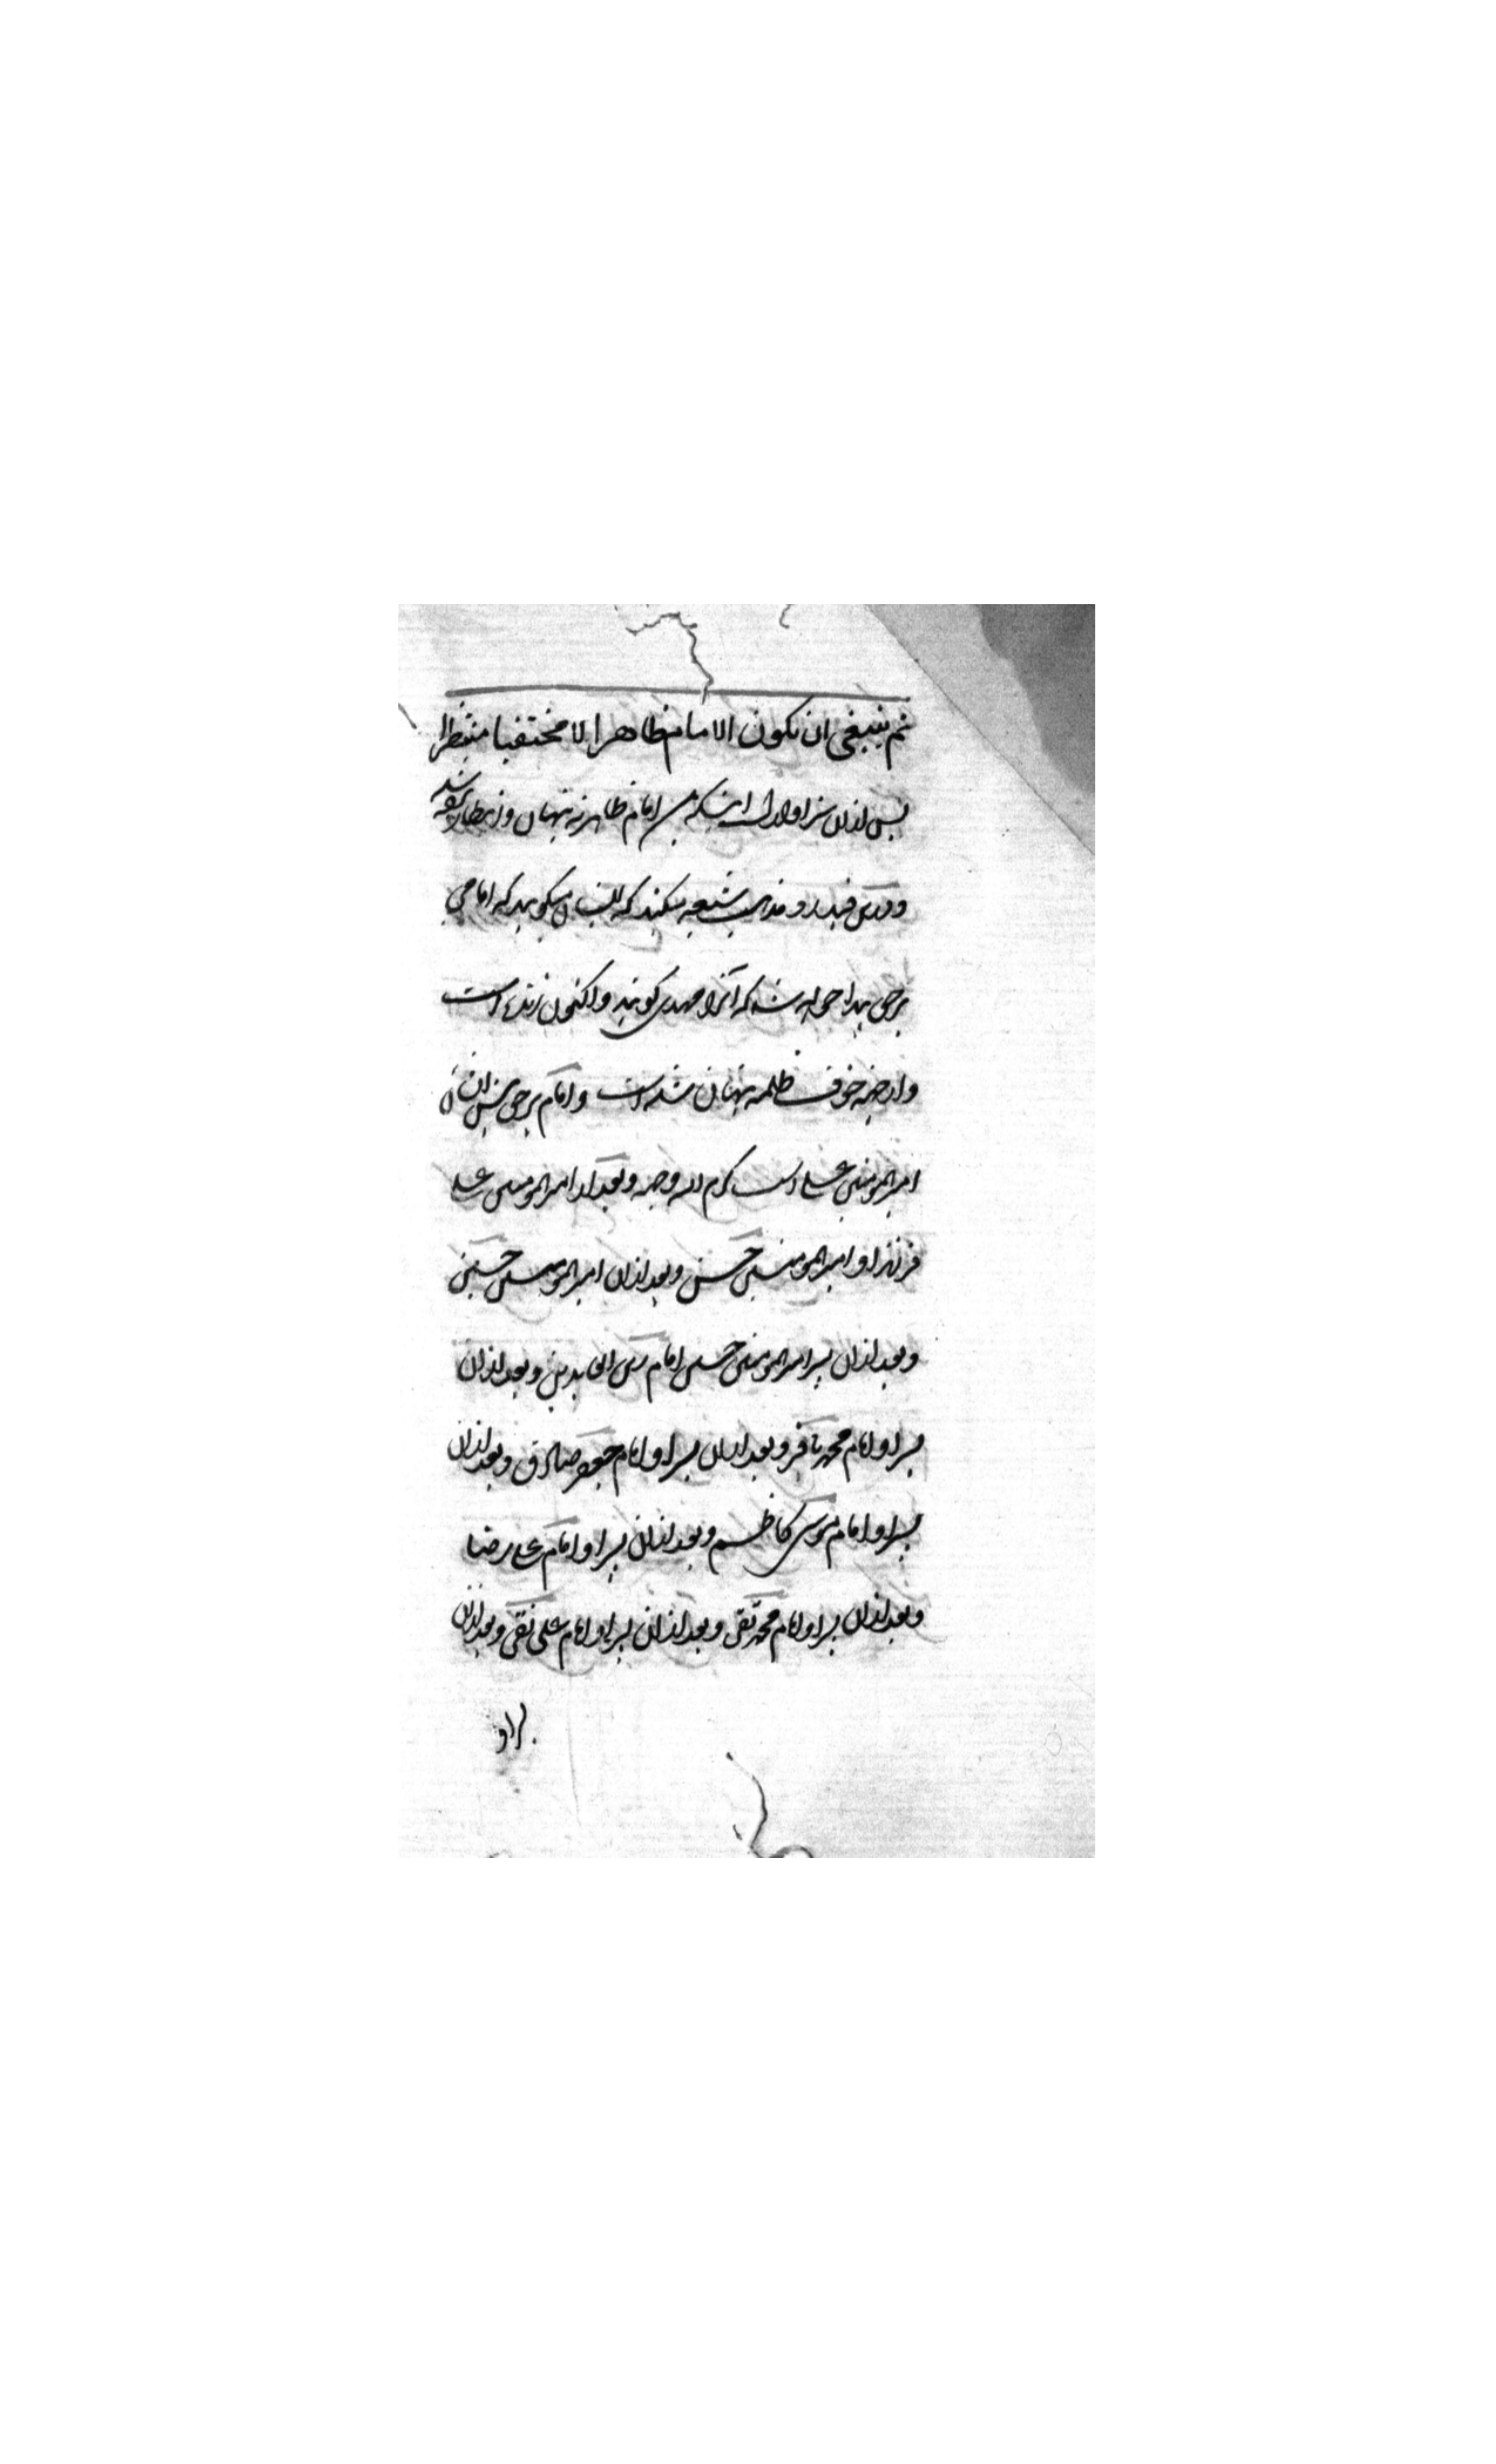 ثم ینبغی ان یکون الامام ظاهرا لا مختفیا منتظرا
پس ازان سزاوار است اینکه امام ظاهر نه پنهان و انتظار
و درین قید رد مذهب شیعه میکند که ایشان میگویند که امامی
برحق پیدا خواهد شد که آنرا مهدی گویند و اکنون زنده است
و از جهة خوف ظلمه پنهان شده است و امام برحق پیش ایشان
امیرالمومنین علی است کرم الله وجهه و بعد از امیرالمومنین علی
فرزند او امیرالمومنین حسن و بعد ازان امیرالمومنین حسین
و بعد ازان پسر امیرالمومنین حسین امام زین العابدین و بعد ازان
پسر او امام محمد باقر و بعد ازان پسر او امام جعفر صادق و بعد ازان
پسر او امام موسی کاظم و بعد ازان پسر او امام علی رضا
و بعد ازان پسر او امام محمد تقی و بعد ازان پسر او امام علی نقی و بعد ازان
پسر او